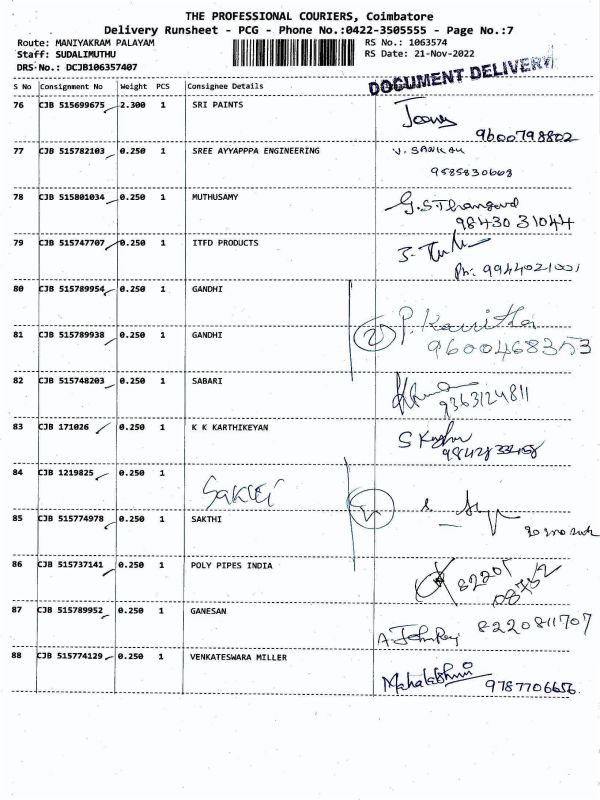 THE PROFESSIONAL COURIERS, Coimbatore
Delivery Runsheet - PCG - Phone No.:0422-3505555 - Page No.:7
Route: MANIYAKRAM PALAYAM RS No.: 1063574
Staff: SUDALIMUTHU RS Date: 21-Nov-2022
DRS No.: DCJB106357407
DOCUMENT DELIVERY
S No Consignment No Weight PCS Consignee Details
76 CJB 515699675 2.300 1 SRI PAINTS
9600798802
77 CJB 515782103 0.250 1 SREE AYYAPPPA ENGINEERING V. SANKAR
9585830663
78 CJB 515801034 0.250 1 MUTHUSAMY G.S.Thangavel
98430 31044
79 CJB 515747707 0.250 1 ITFD PRODUCTS
Ph: 9944021001
80 CJB 515789954 0.250 1 GANDHI
(2) P. Kavitha
81 CJB 515789938 0.250 1 GANDHI 9600468353
82 CJB 515748203 0.250 1 SABARI
9363124811
83 CJB 171026 0.250 1 K K KARTHIKEYAN
84 CJB 1219825 0.250 1
Sakthi
85 CJB 515774978 0.250 1 SAKTHI
86 CJB 515737141 0.250 1 POLY PIPES INDIA
82205
08752
87 CJB 515789952 0.250 1 GANESAN
A. John Raj 8220811707
88 CJB 515774129 0.250 1 VENKATESWARA MILLER
Mahalakshmi 9787706656